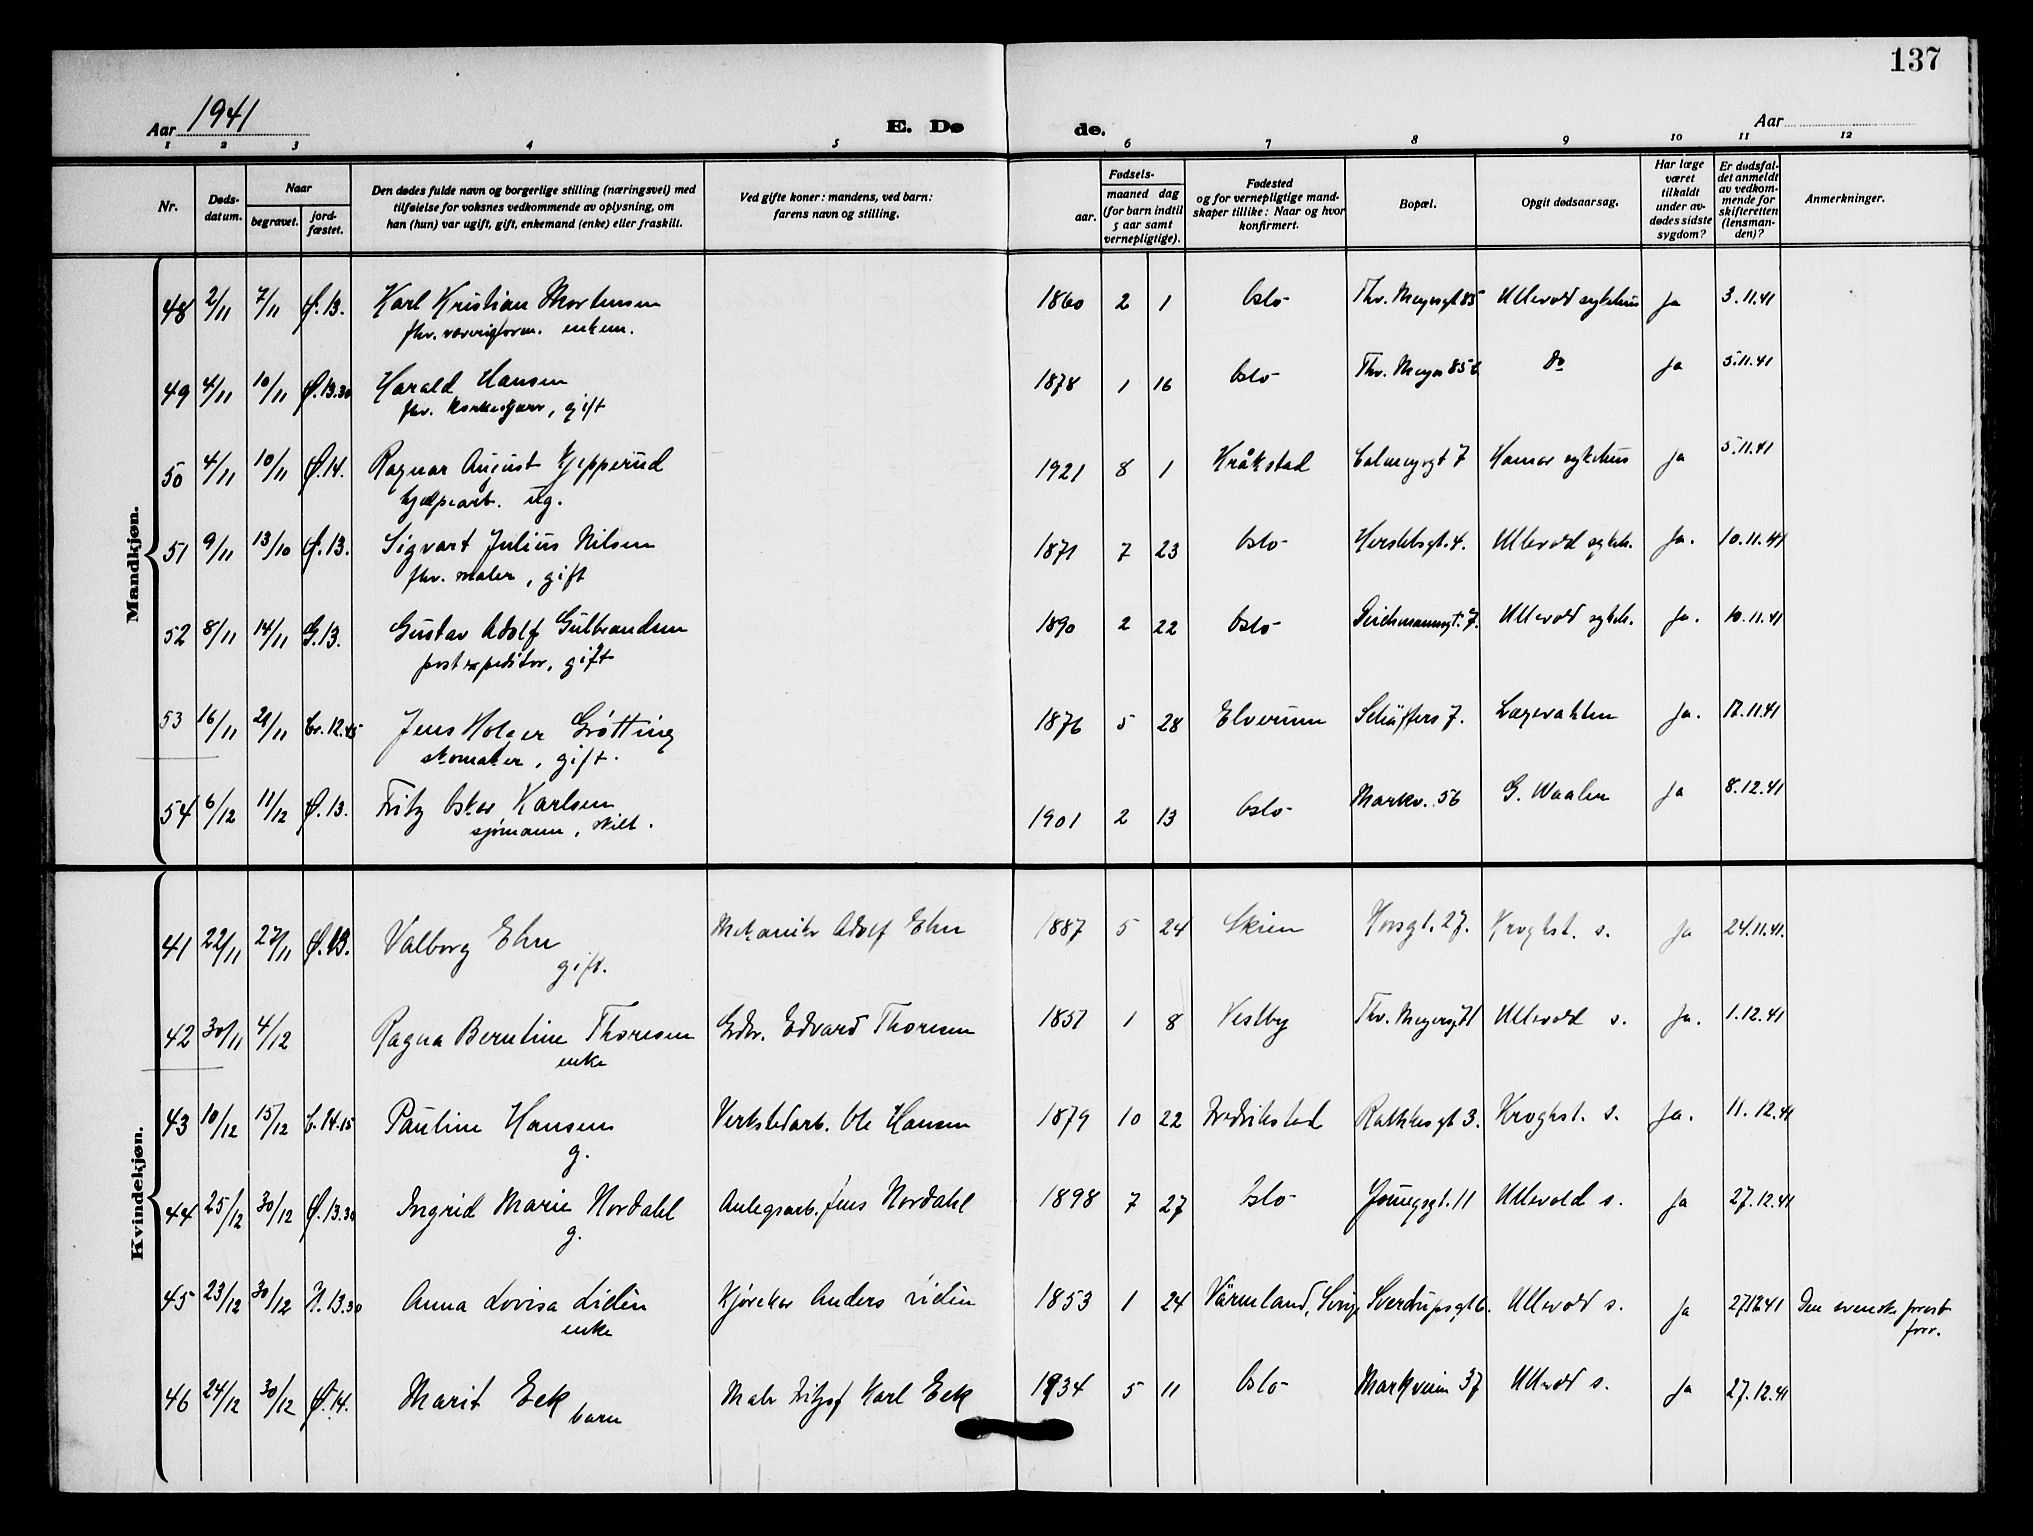 137
Aar 1941
E. Dø
de.
Aar
1 2 3 4 5 6 7 8 9 10 11 12
Nr.
Døds-
datum.
Naar
begravet.
jord-
fæstet.
Den dødes fulde navn og borgerlige stilling (næringsvei) med
tilføielse for voksnes vedkommende av oplysning, om
han (hun) var ugift, gift, enkemand (enke) eller fraskilt.
Ved gifte koner: mandens, ved barn:
farens navn og stilling.
Fødsels-
aar.
maaned dag
(for barn indtil
5 aar samt
vernepligtige).
Fødested
og for vernepligtige mand-
skaper tillike: Naar og hvor
konfirmert.
Bopæl.
Opgit dødsaarsag.
Har læge
været
tilkaldt
under av-
dødes sidste
sygdom?
Er dødsfal-
det anmeldt
av vedkom-
mende for
skifteretten
(lensman-
den)?
Anmerkninger.
Mandkjøn.
48 2/11 7/11 Ø.13. Karl Kristian Mortensen 1860 2 1 Oslo Thv. Meyersgt 85 Ullevold sykehus Ja 3.11.41
fhv. enkem.
49 4/11 10/11 Ø.13.30 Harald Hansen 1878 1 16 Oslo Thv. Meyer 85 b Do Ja 5.11.41
fhv. gift
50 4/11 10/11 Ø.14. Ragnar August Gjepperud 1921 8 1 Kråkstad Calmeyergt 7 Hamar sykehus Ja 5.11.41
hjelpearb. ug.
51 9/11 13/10 Ø.13. Sigvart Julius Nilsen 1871 7 23 Oslo Herslebsgt. 4. Ullevold sykeh. Ja. 10.11.41
fhv. maler, gift
52 8/11 14/11 G.13. Gustav Adolf Gulbrandsen 1890 2 22 Oslo Deichmannsgt. 7. Ullevold sykeh. Ja. 10.11.41
postexpeditør, gift
53 16/11 21/11 Cr. 12.45 Jens Holger Grøtting 1876 5 28 Elverum Schäffers 7. Lægevakten Ja. 17.11.41
skomaker, gift.
54 6/12 11/12 Ø.13. Fritz Oskar Karlsen 1901 2 13 Oslo Markv. 56 G. Waaler Ja 8.12.41
sjømann, skilt.
Kvindekjøn.
41 22/11 27/11 Ø.13. Valborg Ehn Mekaniker Adolf Ehn 1887 5 24 Skien Korsgt. 27. Kroghst. s. Ja 24.11.41.
gift.
42 30/11 4/12 Ragna Berntine Thoresen Edvard Thoresen 1857 1 8 Vestby Thv. Meyersgt 71 Ullevold s. Ja. 1.12.41
enke
43 10/12 15/12 C.14.15 Pauline Hansen Verkstedarb. Ole Hansen 1879 10 22 Fredrikstad Rathkesgt 3. Kroghst. s. Ja. 11.12.41
g.
44 25/12 30/12 Ø.13.30 Ingrid Marie Nordahl Anlegsarb. Jens Nordahl 1898 7 27 Oslo Youngsgt. 11 Ullevold s. Ja 27.12.41
g.
45 23/12 30/12 N.13.30 Anna Lovisa Lidén Kjørekar Anders Lidén 1853 1 24 Värmland, Sverige Sverdrupsgt 6. Ullevold s. Ja 27.12.41 Den svenske prest
enke forr.
46 24/12 30/12 Ø.14. Marit Eek Maler Fritjof Karl Eek 1934 5 11 Oslo Markveien 37 Ullevold s. Ja 27.12.41
barn